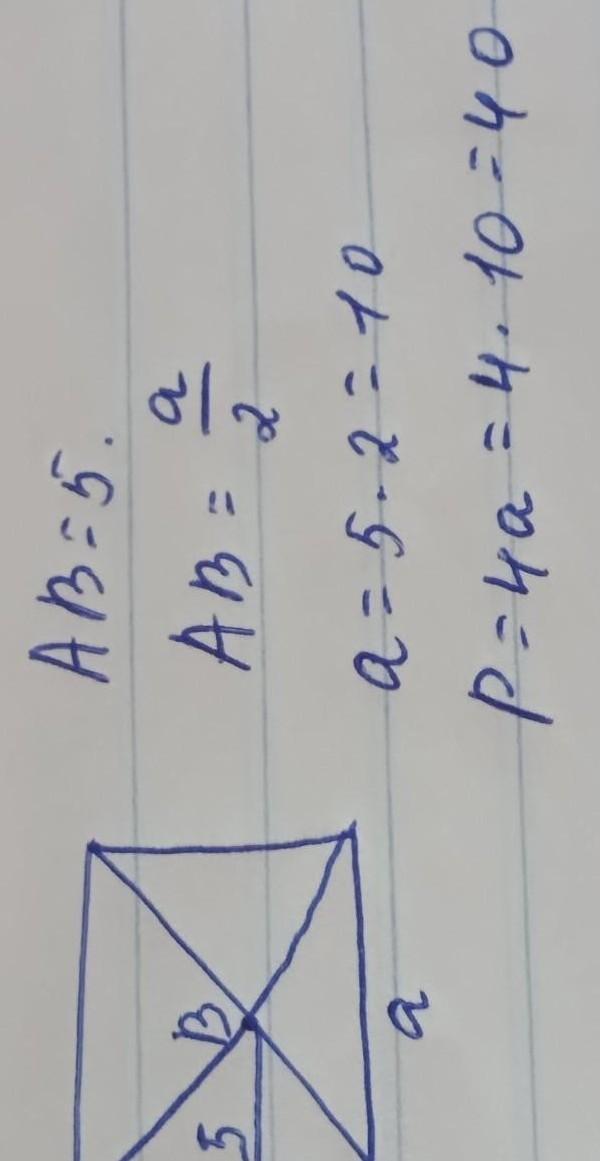 AB = 5.
AB = a/2
a = 5 · 2 = 10
P = 4a = 4 · 10 = 40
B
5
a